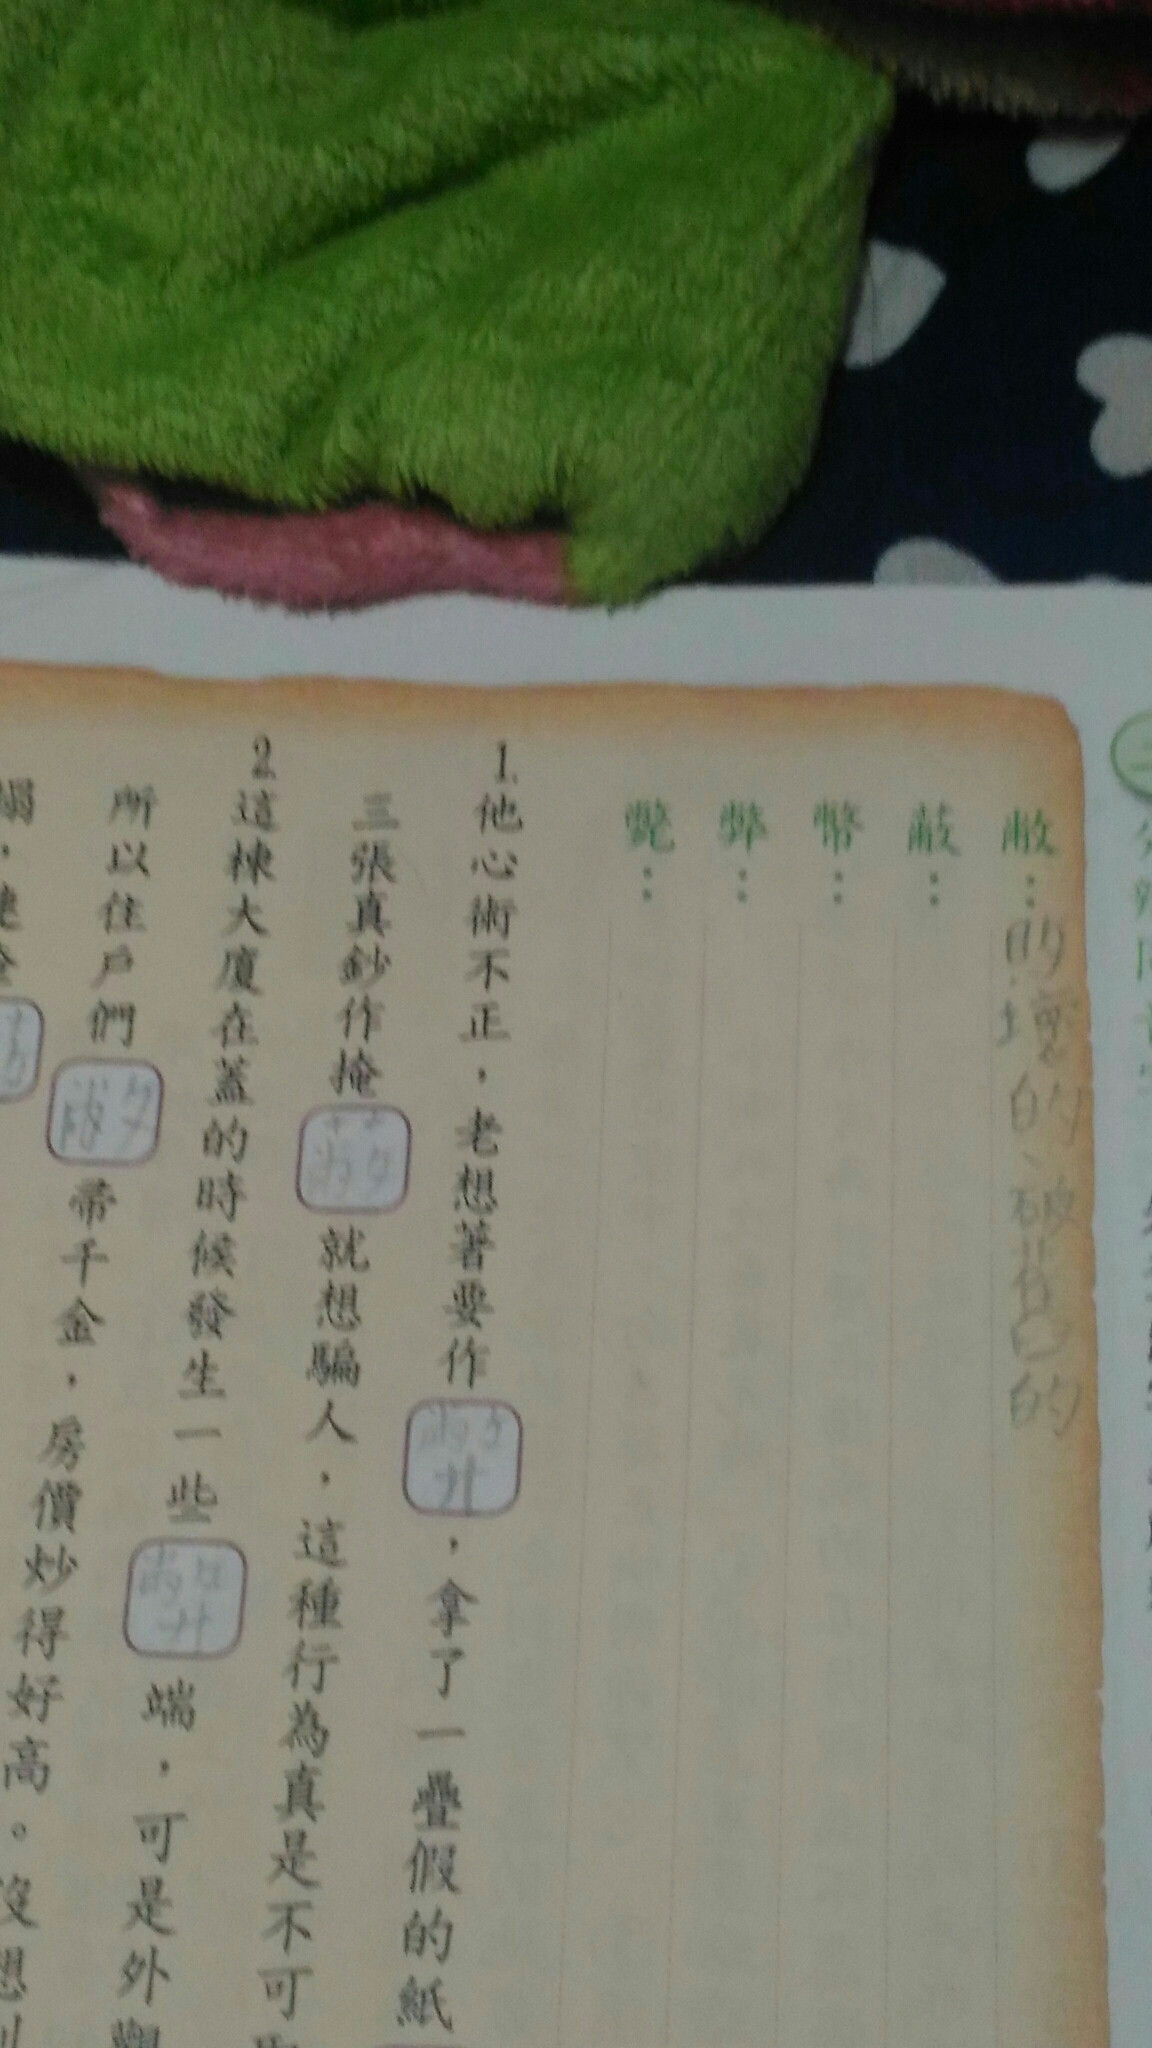 敝：的壞的、破舊的
蔽：
幣：
弊：
斃：
1.他心術不正，老想著要作弊，拿了一疊假的紙
三張真鈔作掩蔽就想騙人，這種行為真是不可
2.這棟大廈在蓋的時候發生一些弊端，可是外觀
所以住戶們敝帚千金，房價炒得好高。沒想到